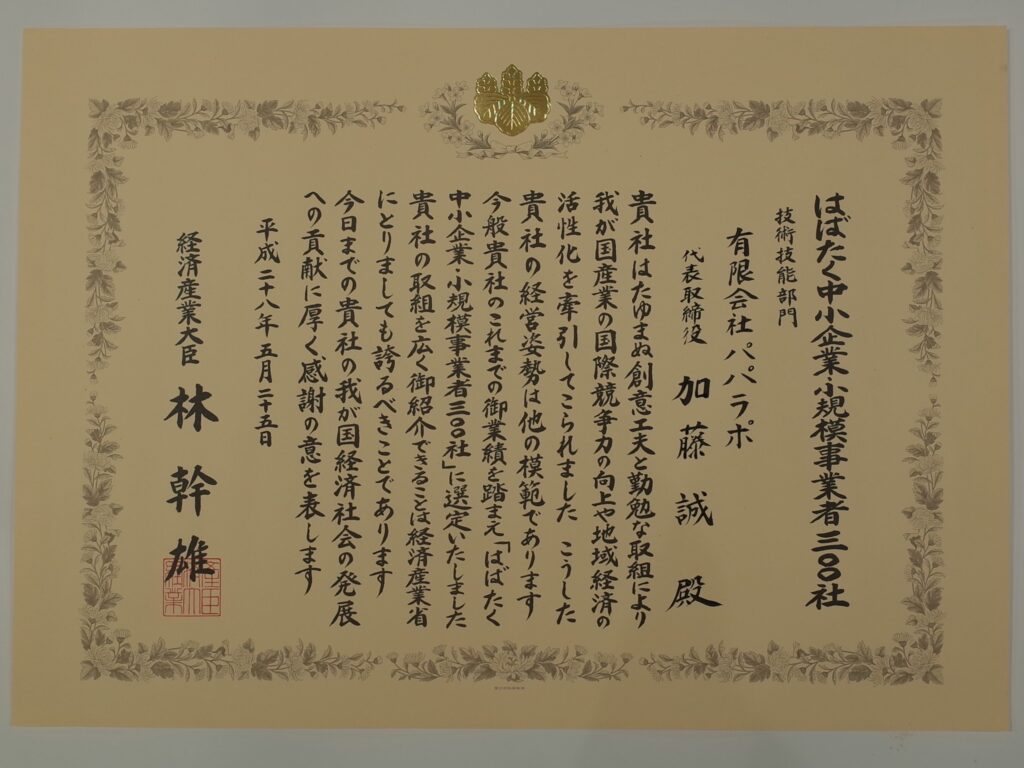 はばたく中小企業・小規模事業者三〇〇社
技術技能部門
有限会社パパラボ
代表取締役 加藤誠殿
貴社はたゆまぬ創意工夫と勤勉な取組により
我が国産業の国際競争力の向上や地域経済の
活性化を牽引してこられました こうした
貴社の経営姿勢は他の模範であります
今般貴社のこれまでの御業績を踏まえ「はばたく
中小企業・小規模事業者三〇〇社」に選定いたしました
貴社の取組を広く御紹介できることは経済産業省
にとりましても誇るべきことであります
今日までの貴社の我が国経済社会の発展
への貢献に厚く感謝の意を表します
平成二十八年五月二十五日
経済産業大臣 林幹雄